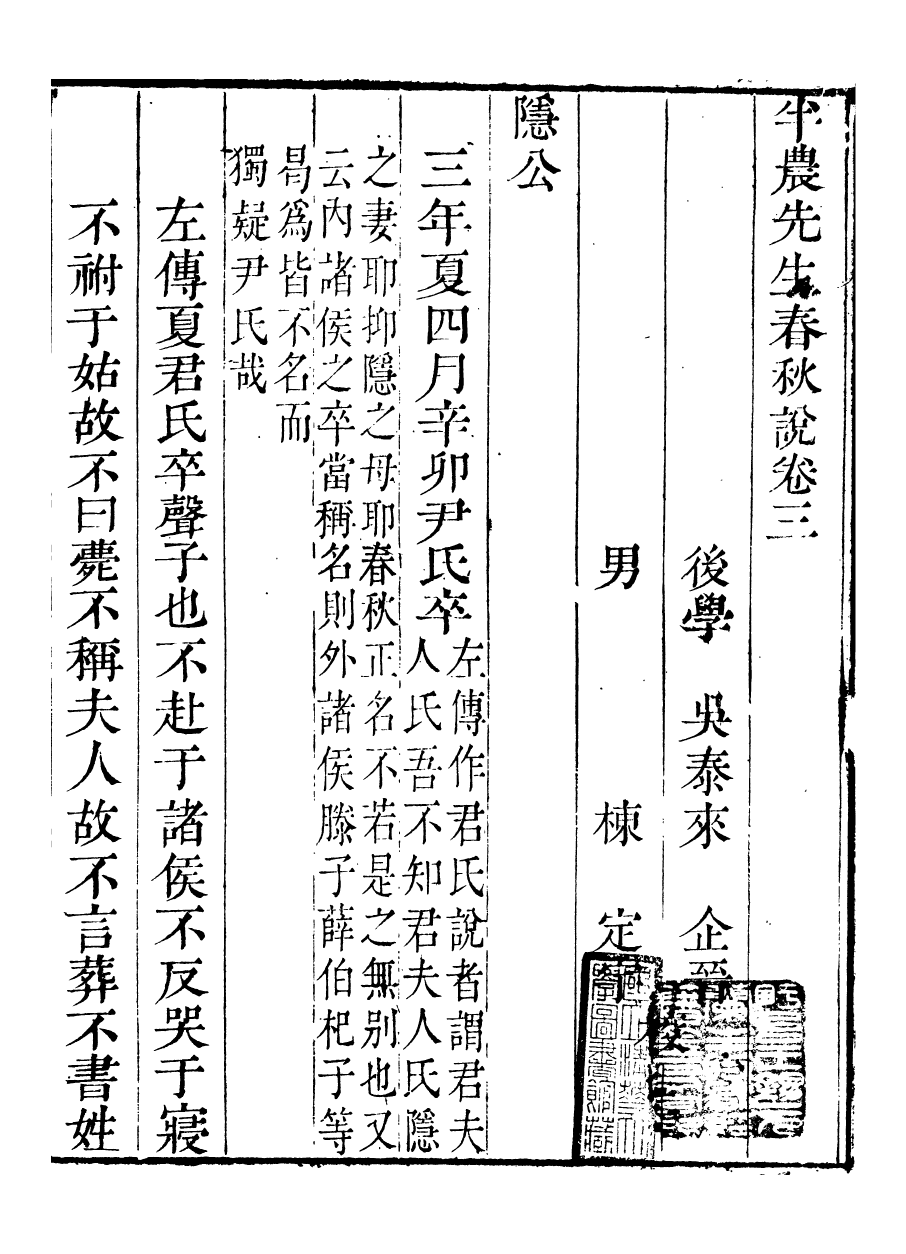 半農先生春秋說卷三
後學 吳泰來 企晉
男 棟 定宇 校
隱公
三年夏四月辛卯尹氏卒
左傳作君氏說者謂君夫
人氏吾不知君夫人氏隱
之妻耶抑隱之母耶春秋正名不若是之無别也又
云內諸侯之卒當稱名則外諸侯滕子薛伯杞子等
曷爲皆不名而
獨疑尹氏哉
左傳夏君氏卒聲子也不赴于諸侯不反哭于寢
不祔于姑故不曰薨不稱夫人故不言葬不書姓